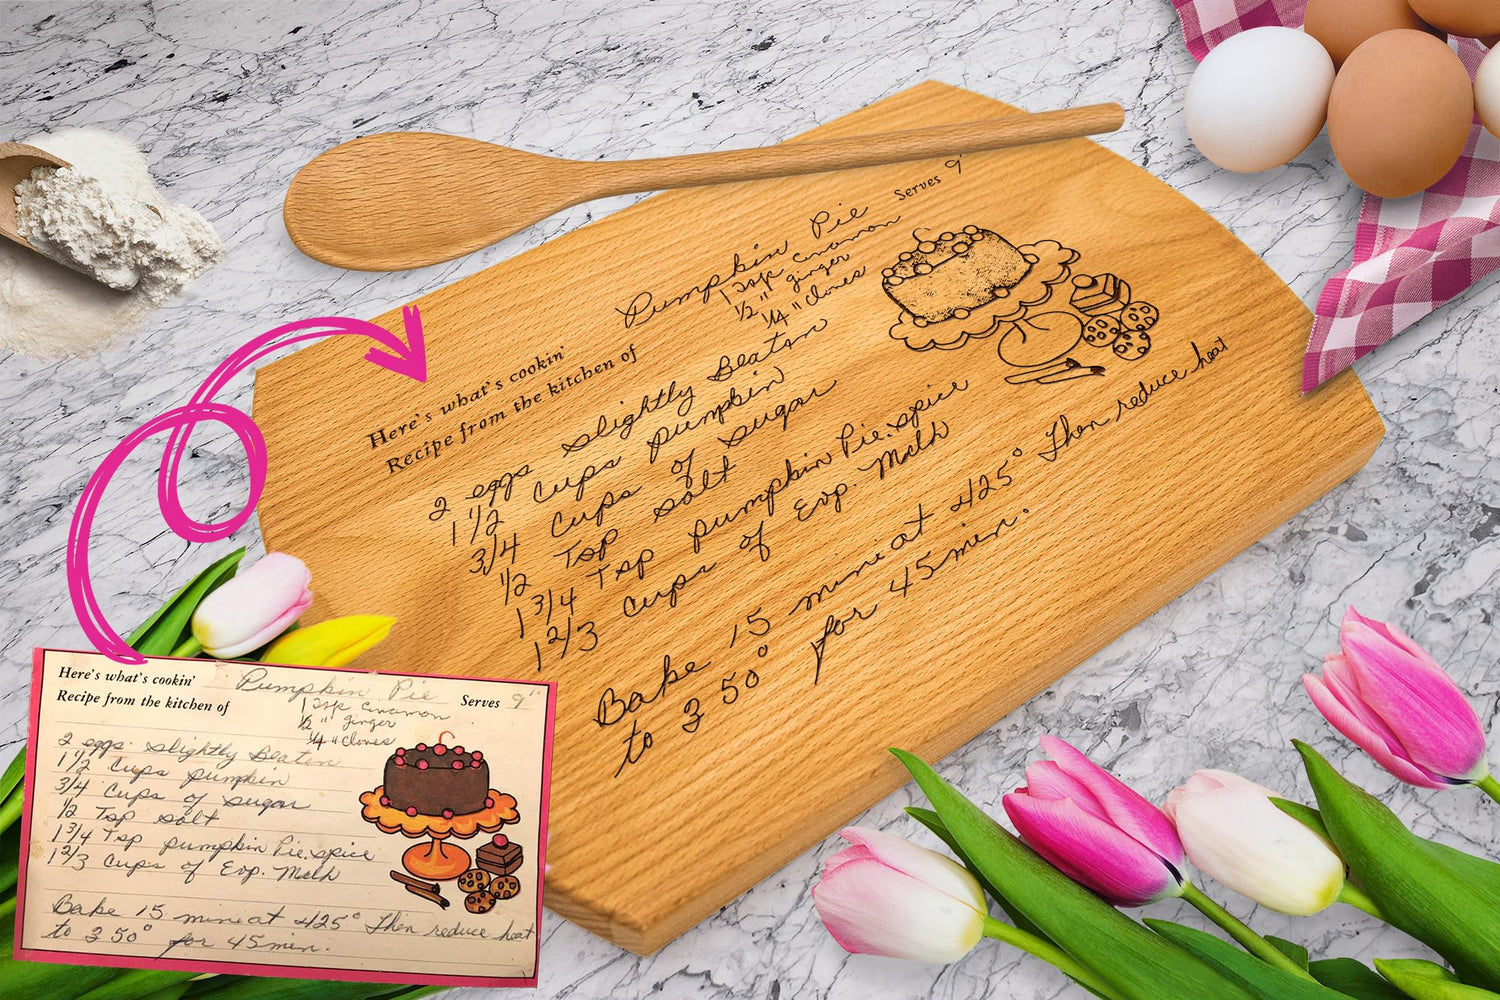 Pumpkin Pie
Serves 9"
1 Tsp cinnamon
1/2 " ginger
1/4 " cloves
Here's what's cookin'
Recipe from the kitchen of
2 eggs slightly Beaten
1 1/2 Cups pumpkin
3/4 Cups of sugar
1/2 Tsp salt
1 3/4 Tsp pumpkin Pie.spice
1 2/3 Cups of Evp. Melh
Bake 15 mins at 425° Then reduce heat
to 350° for 45 min.
Here's what's cookin' Pumpkin Pie
Recipe from the kitchen of Serves 9"
1 Tsp cinnamon
1/2 " ginger
1/4 " cloves
2 eggs slightly Beaten
1 1/2 Cups pumpkin
3/4 Cups of sugar
1/2 Tsp salt
1 3/4 Tsp pumpkin Pie.spice
1 2/3 Cups of Evp. Melh
Bake 15 mins at 425° Then reduce heat
to 350° for 45 min.